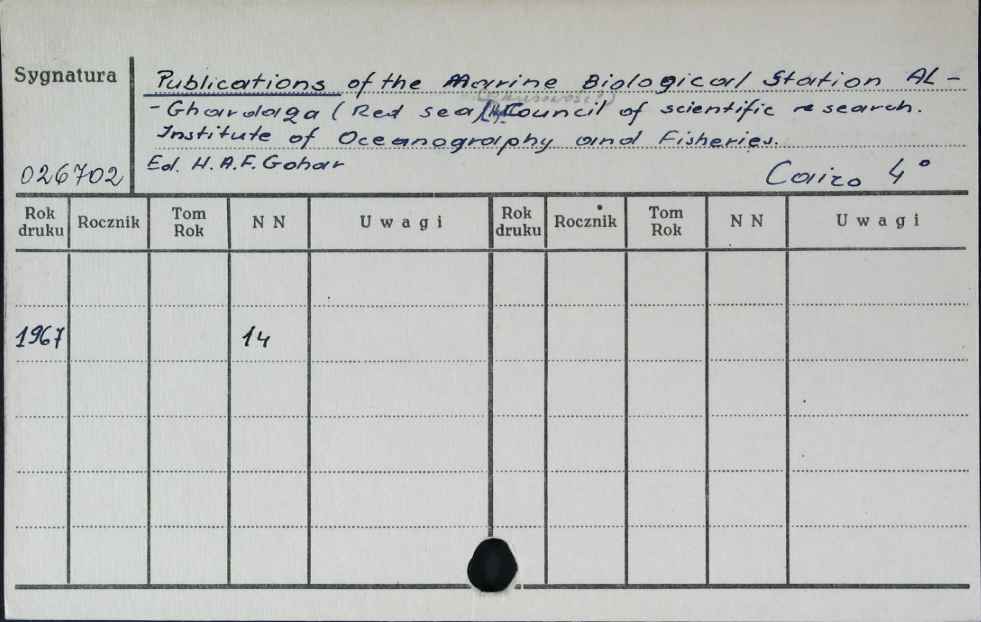 Sygnatura
Publications of the Marine Biological Station AL-
-Ghardaga (Red sea) Council of scientific research.
Institute of Oceanography and Fisheries.
Ed. H.A.F. Gohar
026702
Cairo 4°
Rok druku Rocznik Tom Rok NN Uwagi Rok druku Rocznik Tom Rok NN Uwagi
1967 14